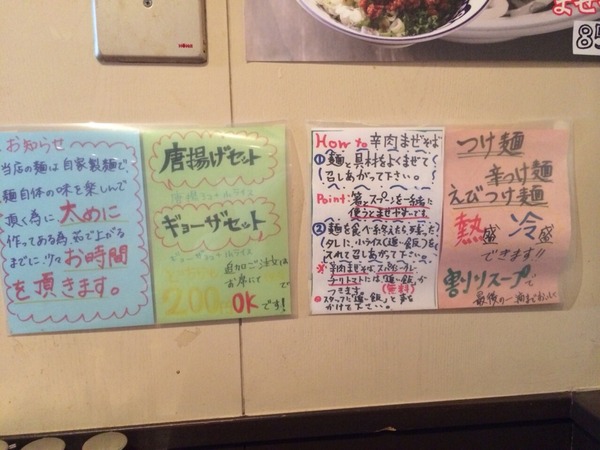 お知らせ
当店の麺は自家製麺で、
麺自体の味を楽しんで
頂く為に太めに
作ってある為茹で上がる
までに少々お時間
を頂きます。
唐揚げセット
唐揚げ3ヶ 小ライス
ギョーザセット
ギョーザ3ヶ 小ライス
追加ご注文は
お席にて
200円 OKです!
How to 辛肉まぜそば
①麺、具材をよくまぜて
召しあがって下さい。
Point: 箸とスプーンを一緒に
使うとまぜやすーです。
②麺を食べ終えたら、残った
タレに、小ライス(追い飯)を
入れて召しあがって下さい。
※辛肉まぜそば、スパイシーカレー
チリトマトには「追い飯」が
つきます。(無料)
スタッフに「追い飯」と声を
かけて下さい。
つけ麺
辛つけ麺
えびつけ麺
熱盛 冷盛
できます!!
割りスープで
最後の一滴まで
まぜ